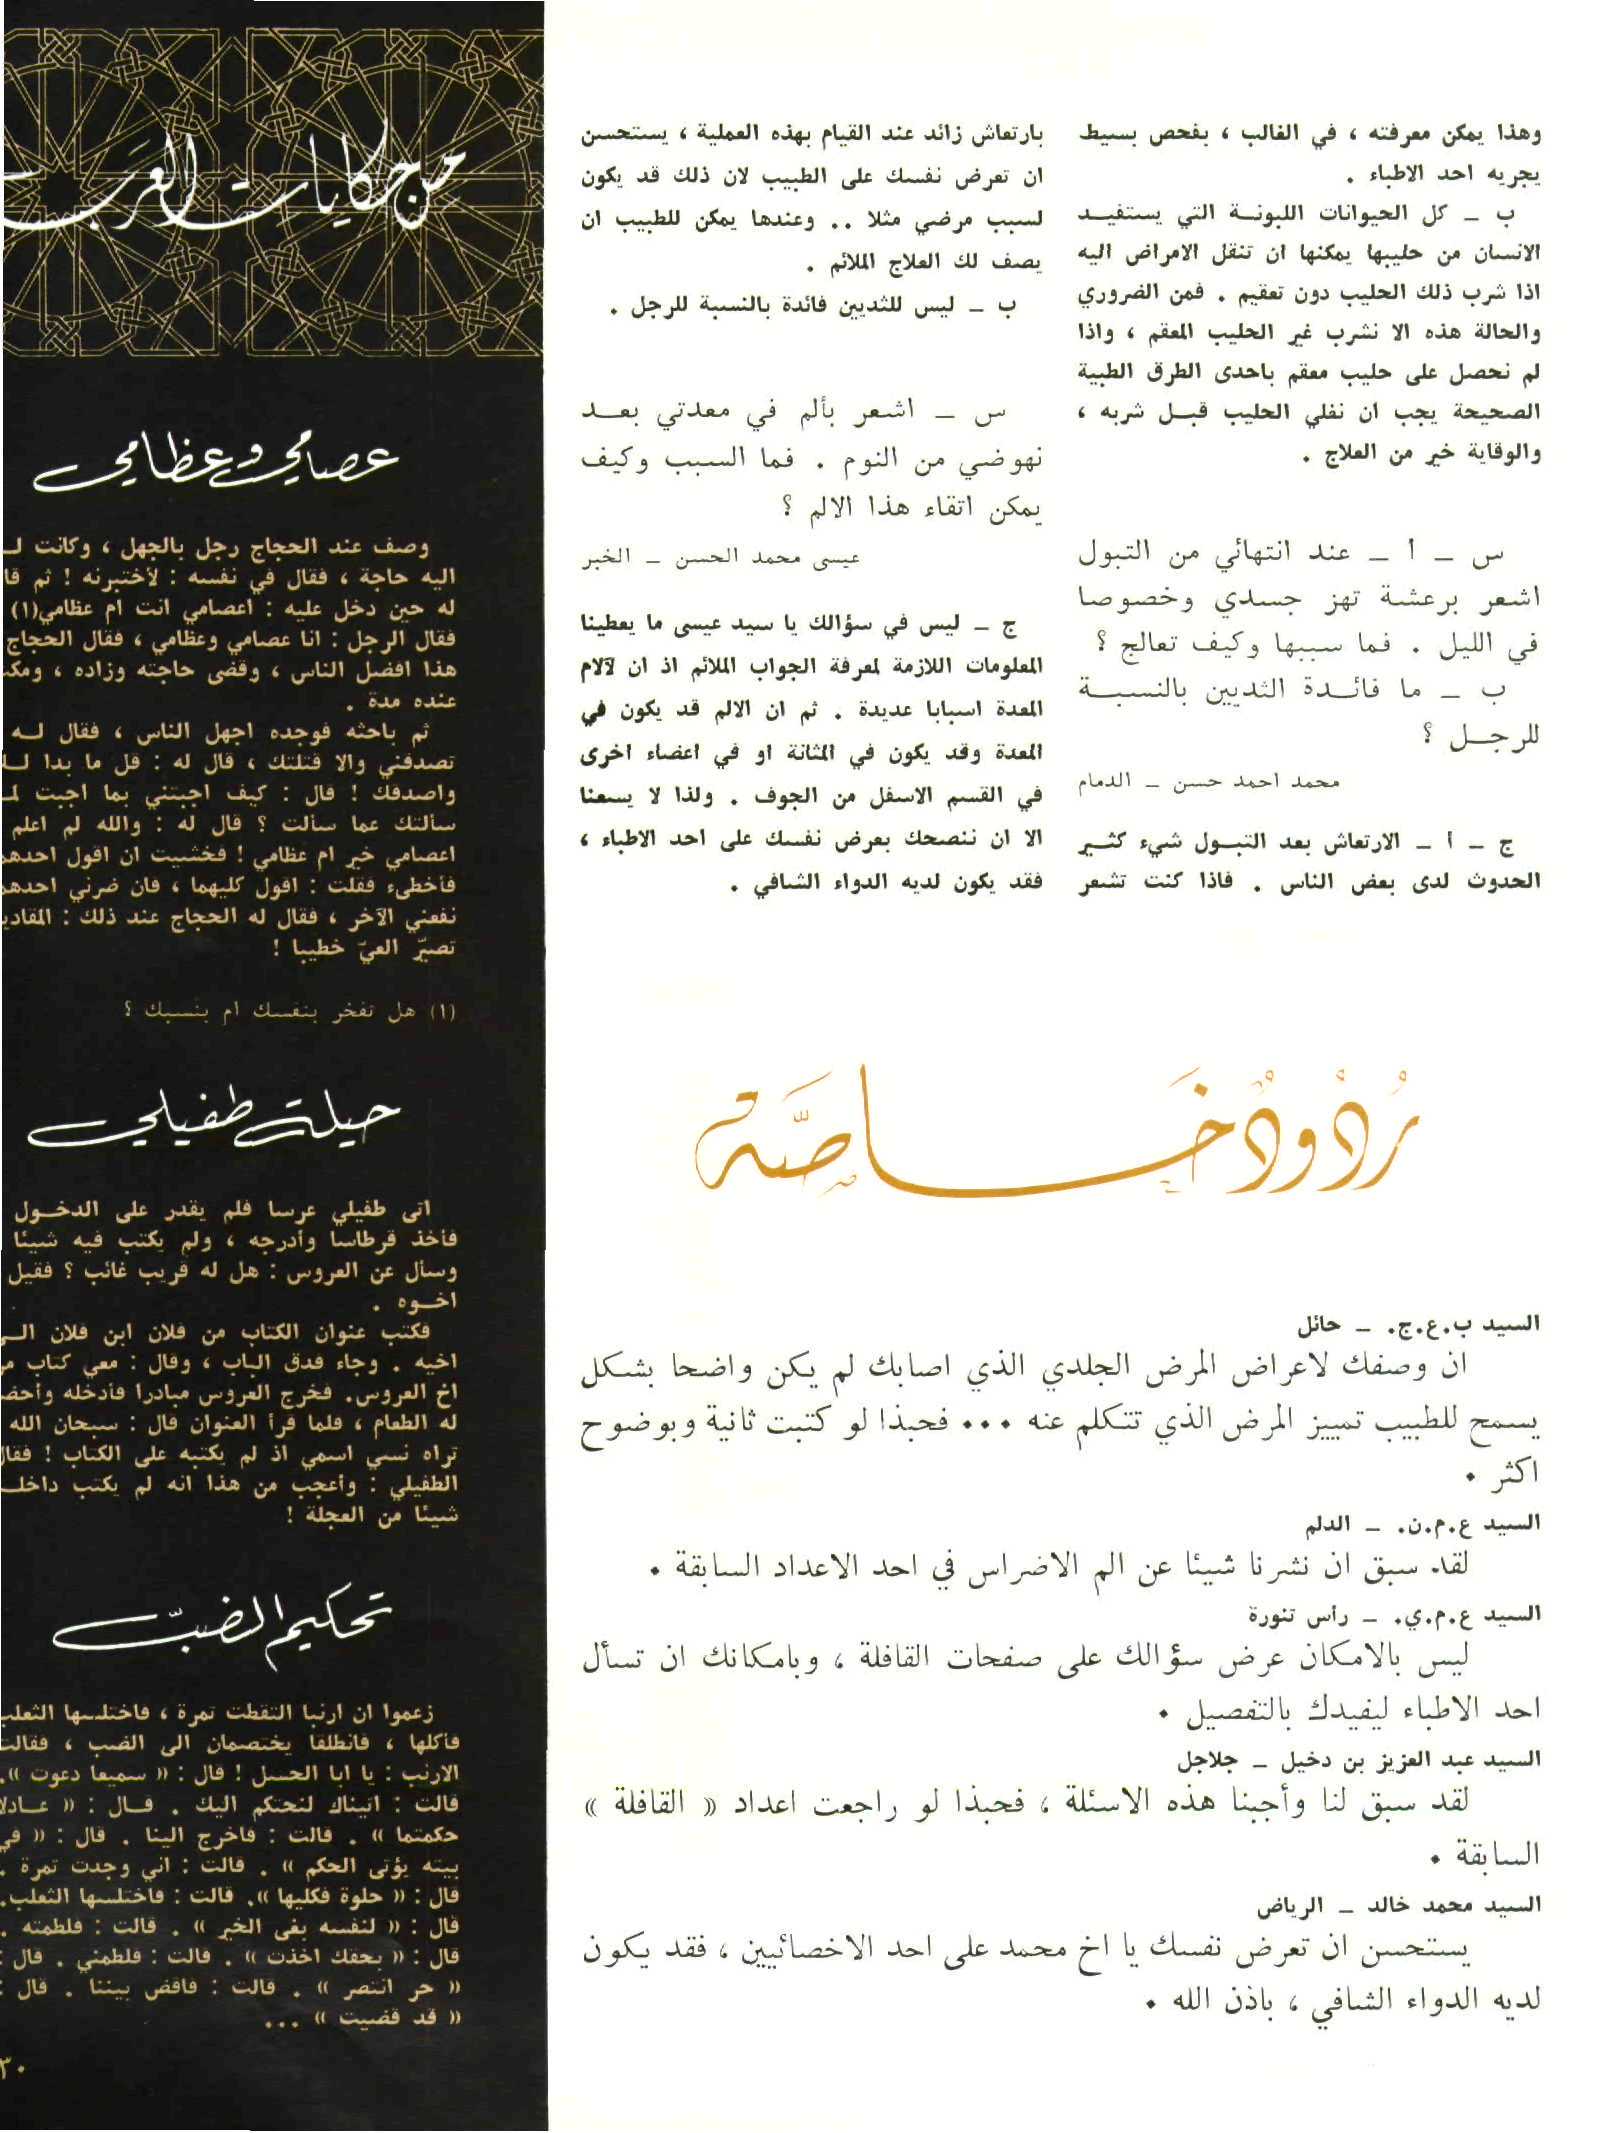 وهذا يمكن معرفته ، في الغالب ، بفحص بسيط
يجريه احد الاطباء .
ب ــ كل الحيوانات اللبونة التي يستفيد
الانسان من حليبها يمكنها ان تنقل الامراض اليه
اذا شرب ذلك الحليب دون تعقيم . فمن الضروري
والحالة هذه الا نشرب غير الحليب المعقم ، واذا
لم نحصل على حليب معقم باحدى الطرق الطبية
الصحيحة يجب ان نغلي الحليب قبل شربه ،
والوقاية خير من العلاج .
س ــ ا ــ عند انتهائي من التبول
اشعر برعشة تهز جسدي وخصوصا
في الليل . فما سببها وكيف تعالج ؟
ب ــ ما فائدة الثديين بالنسبة
للرجل ؟
محمد احمد حسن ــ الدمام
ج ــ ا ــ الارتعاش بعد التبول شيء كثير
الحدوث لدى بعض الناس . فاذا كنت تشعر
بارتعاش زائد عند القيام بهذه العملية ، يستحسن
ان تعرض نفسك على الطبيب لان ذلك قد يكون
لسبب مرضي مثلا .. وعندها يمكن للطبيب ان
يصف لك العلاج الملائم .
ب ــ ليس للثديين فائدة بالنسبة للرجل .
س ــ اشعر بألم في معدتي بعد
نهوضي من النوم . فما السبب وكيف
يمكن اتقاء هذا الالم ؟
عيسى محمد الحسن ــ الخبر
ج ــ ليس في سؤالك يا سيد عيسى ما يعطينا
المعلومات اللازمة لمعرفة الجواب الملائم اذ ان لآلام
المعدة اسبابا عديدة . ثم ان الالم قد يكون في
المعدة وقد يكون في المثانة او في اعضاء اخرى
في القسم الاسفل من الجوف . ولذا لا يسعنا
الا ان ننصحك بعرض نفسك على احد الاطباء ،
فقد يكون لديه الدواء الشافي .
رُدُودٌ خَاصَّة
السيد ب.ع.ج. ــ حائل
ان وصفك لاعراض المرض الجلدي الذي اصابك لم يكن واضحا بشكل
يسمح للطبيب تمييز المرض الذي تتكلم عنه ... فحبذا لو كتبت ثانية وبوضوح
اكثر .
السيد ع.م.ن. ــ الدلم
لقد سبق ان نشرنا شيئا عن الم الاضراس في احد الاعداد السابقة .
السيد ع.م.ي. ــ رأس تنورة
ليس بالامكان عرض سؤالك على صفحات القافلة ، وبامكانك ان تسأل
احد الاطباء ليفيدك بالتفصيل .
السيد عبد العزيز بن دخيل ــ جلاجل
لقد سبق لنا وأجبنا هذه الاسئلة ، فحبذا لو راجعت اعداد « القافلة »
السابقة .
السيد محمد خالد ــ الرياض
يستحسن ان تعرض نفسك يا اخ محمد على احد الاخصائيين ، فقد يكون
لديه الدواء الشافي ، باذن الله .
من حكايات العرب
عصامي وعظامي
وصف عند الحجاج رجل بالجهل ، وكانت
اليه حاجة ، فقال في نفسه : لأختبرنه ! ثم
له حين دخل عليه : اعصامي انت ام عظامي(١)
فقال الرجل : انا عصامي وعظامي ، فقال الحجاج
هذا افضل الناس ، وقضى حاجته وزاده ،
عنده مدة .
ثم باحثه فوجده اجهل الناس ، فقال لـه
تصدقني والا قتلتك ، قال له : قل ما بدا
واصدقك ! قال : كيف اجبتني بما اجبت
سألتك عما سألت ؟ قال له : والله لم اعلم
اعصامي خير ام عظامي ! فخشيت ان اقول
فأخطىء فقلت : اقول كليهما ، فان ضرني
نفعني الآخر ، فقال له الحجاج عند ذلك :
تصيّر العيّ خطيبا !
(١) هل تفخر بنفسك ام بنسبك ؟
حيلة طفيلي
اتى طفيلي عرسا فلم يقدر على الدخول
فأخذ قرطاسا وأدرجه ، ولم يكتب فيه شيئا
وسأل عن العروس : هل له قريب غائب ؟ فقيل
اخوه .
فكتب عنوان الكتاب من فلان ابن فلان
اخيه . وجاء فدق الباب ، وقال : معي كتاب
اخ العروس. فخرج العروس مبادرا فأدخله
له الطعام ، فلما قرأ العنوان قال : سبحان الله
تراه نسي اسمي اذ لم يكتبه على الكتاب !
الطفيلي : وأعجب من هذا انه لم يكتب
شيئا من العجلة !
تحكيم الضبّ
زعموا ان ارنبا التقطت تمرة ، فاختلسها الثعلب
فأكلها ، فانطلقا يختصمان الى الضب ، فقالت
الارنب : يا ابا الحسل ! قال : « سميعا دعوت ».
قالت : اتيناك لنحتكم اليك . قال : « عادلا
حكمتما » . قالت : فاخرج الينا . قال : « في
بيته يؤتى الحكم » . قالت : اني وجدت تمرة .
قال : « حلوة فكليها ». قالت : فاختلسها الثعلب.
قال : « لنفسه بغى الخير » . قالت : فلطمته .
قال : « بحقك اخذت » . قالت : فلطمني . قال :
« حر انتصر » . قالت : فاقض بيننا . قال :
« قد قضيت » ...
٣٠